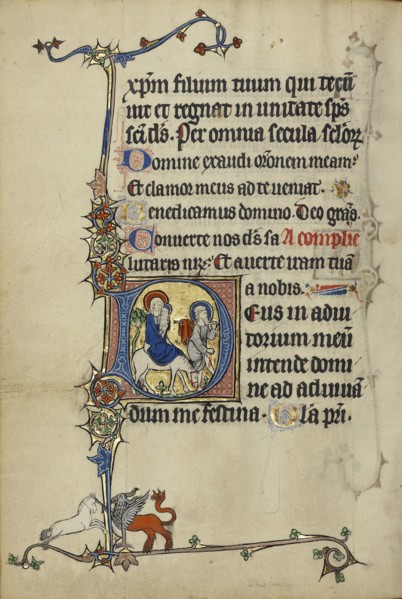 xp̄m filium tuum qui tecū
uiuit et regnat in unitate sp̄s
sc̄i d̄s. Per omnia secula sc̄lorꝝ
Domine exaudi oronem meam:
Et clamor meus ad te ueniat.
Benedicamus domino. Deo gr̄as.
Conuerte nos d̄s sa A complie
lutaris nr̄: Et auerte iram tuā
a nobis.
Deus in adiu
torium meū
intende domi
ne ad adiuuā
dum me festina. Gl̄a pr̄i.